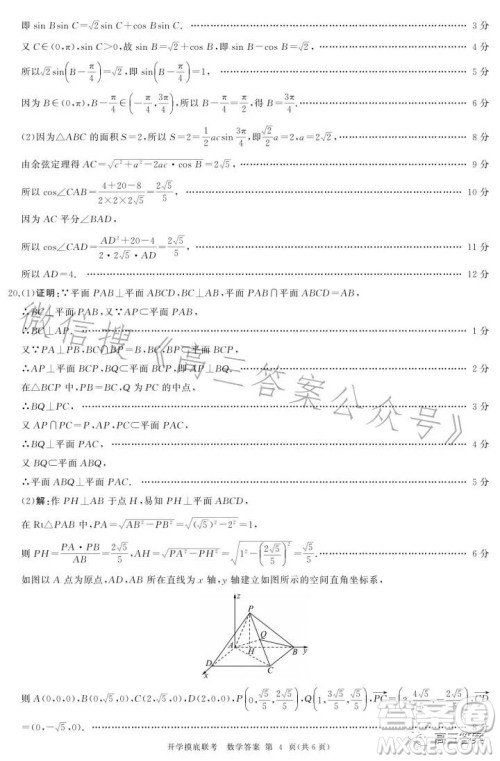 即 sin Bsin C=√2 sin C+cos Bsin C. 3分
又 C∈(0,π),sin C>0,故 sin B=√2+cos B,即 sin B−cos B=√2, 4分
所以√2 sin(B−π/4)=√2,即 sin(B−π/4)=1, 5分
因为 B∈(0,π),B−π/4∈(−π/4,3π/4),所以 B−π/4=π/2,得 B=3π/4. 6分
(2)因为△ABC 的面积 S=2,所以 S=2=1/2 acsin 3π/4,即√2/2 a=2,a=2√2, 8分
由余弦定理得 AC=√(c²+a²−2ac·cos B)=2√5, 9分
所以 cos∠CAB=(4+20−8)/(2×2×2√5)=2√5/5. 10分
因为 AC 平分∠BAD,
所以 cos∠CAD=(AD²+20−4)/(2·2√5·AD)=2√5/5, 11分
所以 AD=4. 12分
20.(1)证明:∵平面 PAB⊥平面 ABCD,BC⊥AB,平面 PAB∩平面 ABCD=AB,
∴BC⊥平面 PAB,又∵AP⊂平面 PAB,
∴BC⊥AP. 1分
又∵PA⊥PB,BC∩BP=B,BC⊂平面 BCP,BP⊂平面 BCP,
∴AP⊥平面 BCP,BQ⊂平面 BCP,即 AP⊥BQ. 2分
在△BCP 中,PB=BC,Q 为 PC 的中点,
∴BQ⊥PC, 3分
又 AP∩PC=P,AP,PC⊂平面 PAC,
∴BQ⊥平面 PAC. 4分
又 BQ⊂平面 ABQ,
∴平面 ABQ⊥平面 PAC. 5分
(2)解:作 PH⊥AB 于点 H,易知 PH⊥平面 ABCD,
在 Rt△PAB 中,PA=√(AB²−PB²)=√((√5)²−2²)=1,
则 PH=PA·PB/AB=2√5/5,AH=√(PA²−PH²)=√(1²−(2√5/5)²)=√5/5. 6分
如图以 A 点为原点,AD,AB 所在直线为 x 轴,y 轴建立如图所示的空间直角坐标系,
z
P
Q
A
H
B
y
D
C
x
则 A(0,0,0),B(0,√5,0),C(2,√5,0),D(2,0,0),P(0,√5/5,2√5/5),Q(1,3√5/5,√5/5),PC=
=(0,−√5,0).
开学摸底联考 数学答案 第 4 页(共 6 页)
微信搜《高三答案公众号》
高三答案